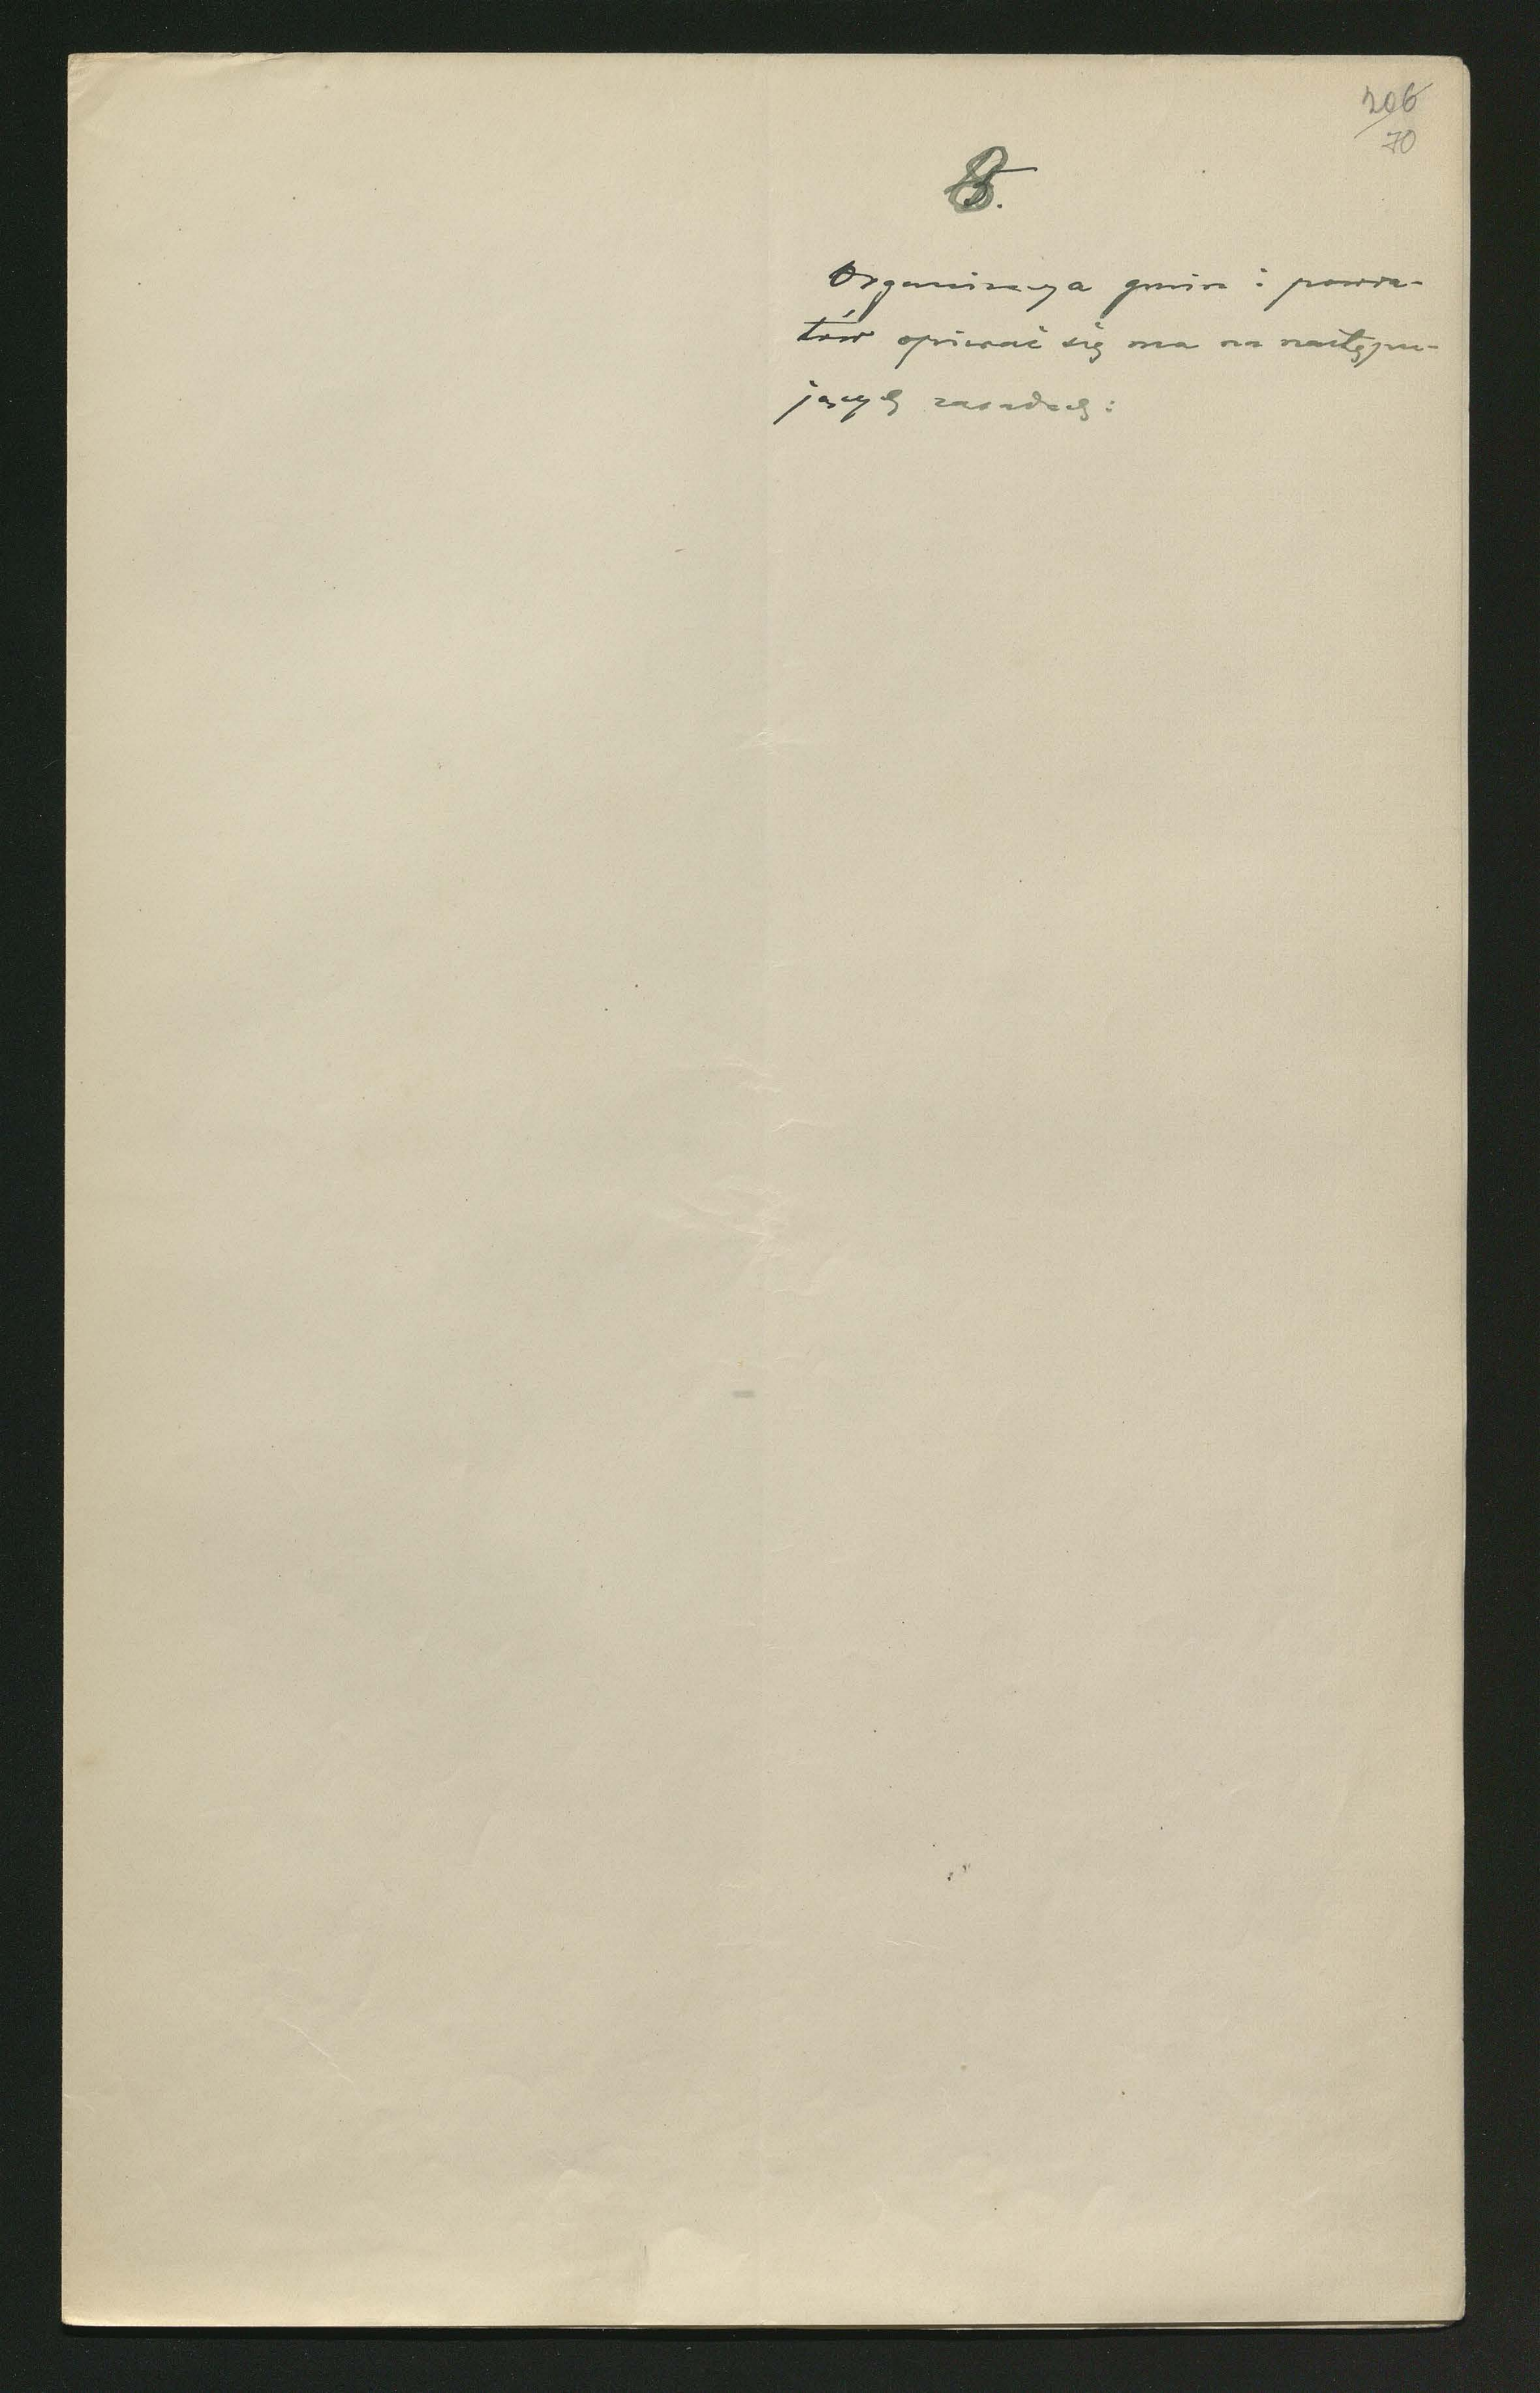 206
70
8.
Organizacya gmin i powia-
tów opierać się ma na następu-
jących zasadach: